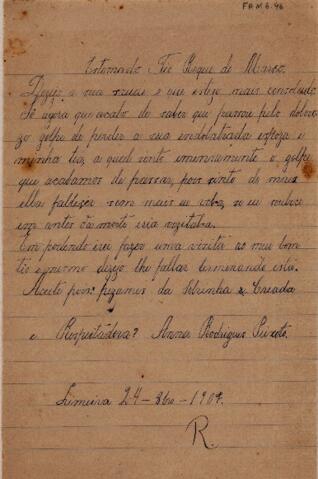 FAM 6.96
Estomado Tio Roque de Marco.
Dezejo a sua saude e que esteja mais consolado
Só agora que acabo de saber que passou pelo doloro
zo golpe de perder a sua indolatrada espoza e
minha tia, a qual senti immensamente o golpe
que acabamos de passar, pois sinto de minha
ella fallecer sem mais eu vela, se eu soubesse
em antes da morte iria vezitala.
Em podendo irei fazer uma vizita ao meu bom
tio e dezejo lhe fallar terminando esta.
Aceite pois pezames da Sobrinha & Creada
e Respeitadora? Anna Rodrigues Peixoto.
Limeira 24 - 1904.
R.